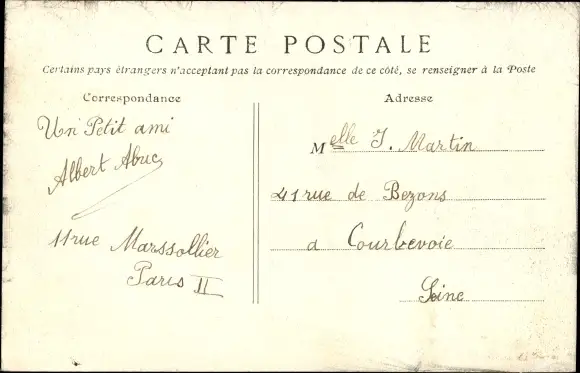 CARTE POSTALE
Certains pays étrangers n'acceptant pas la correspondance de ce côté, se renseigner à la Poste
Correspondance
Un Petit ami
Albert Abuc
11 rue Marssollier
Paris II
Adresse
Melle J. Martin
41 rue de Bezons
a Courbevoie
Seine